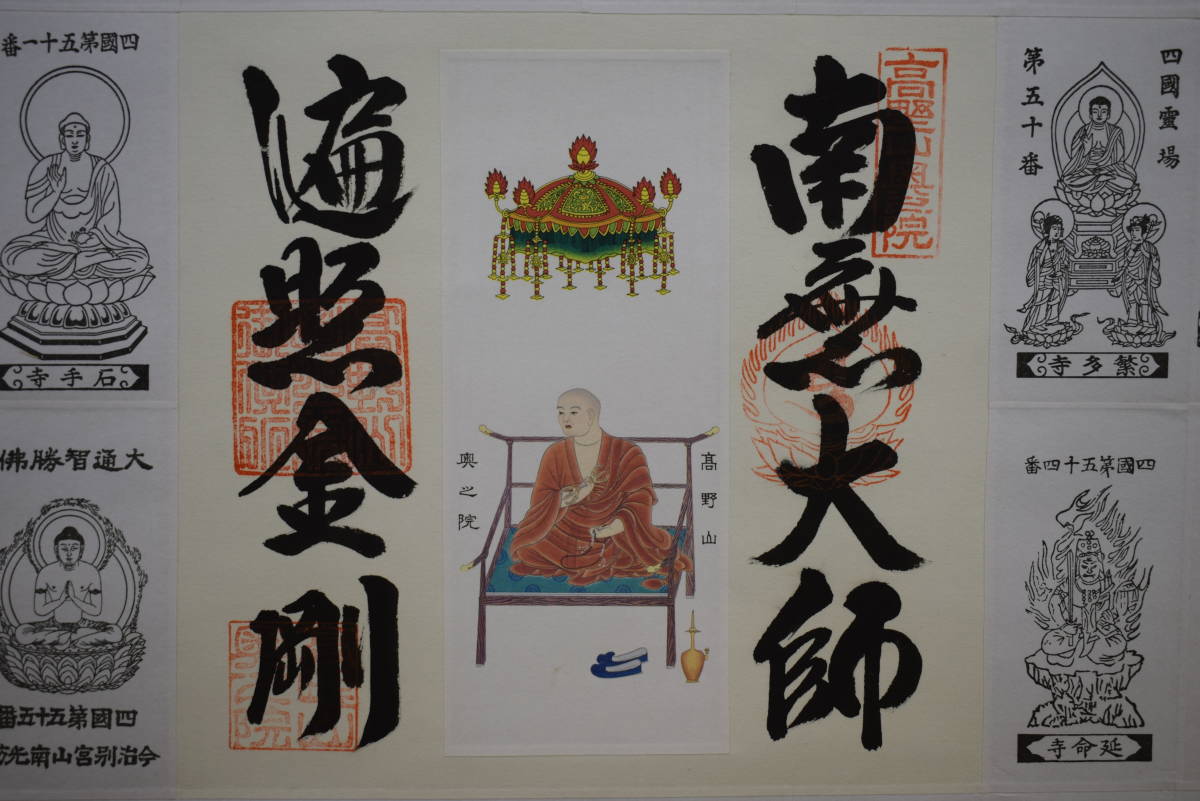 南無大師
遍照金剛
高野山奥之院
髙野山
奥之院
四國靈場
第五十番
繁多寺
四國第五十四番
延命寺
四國第五十一番
石手寺
大通智勝佛
四國第五十五番
今治別宮山南光坊